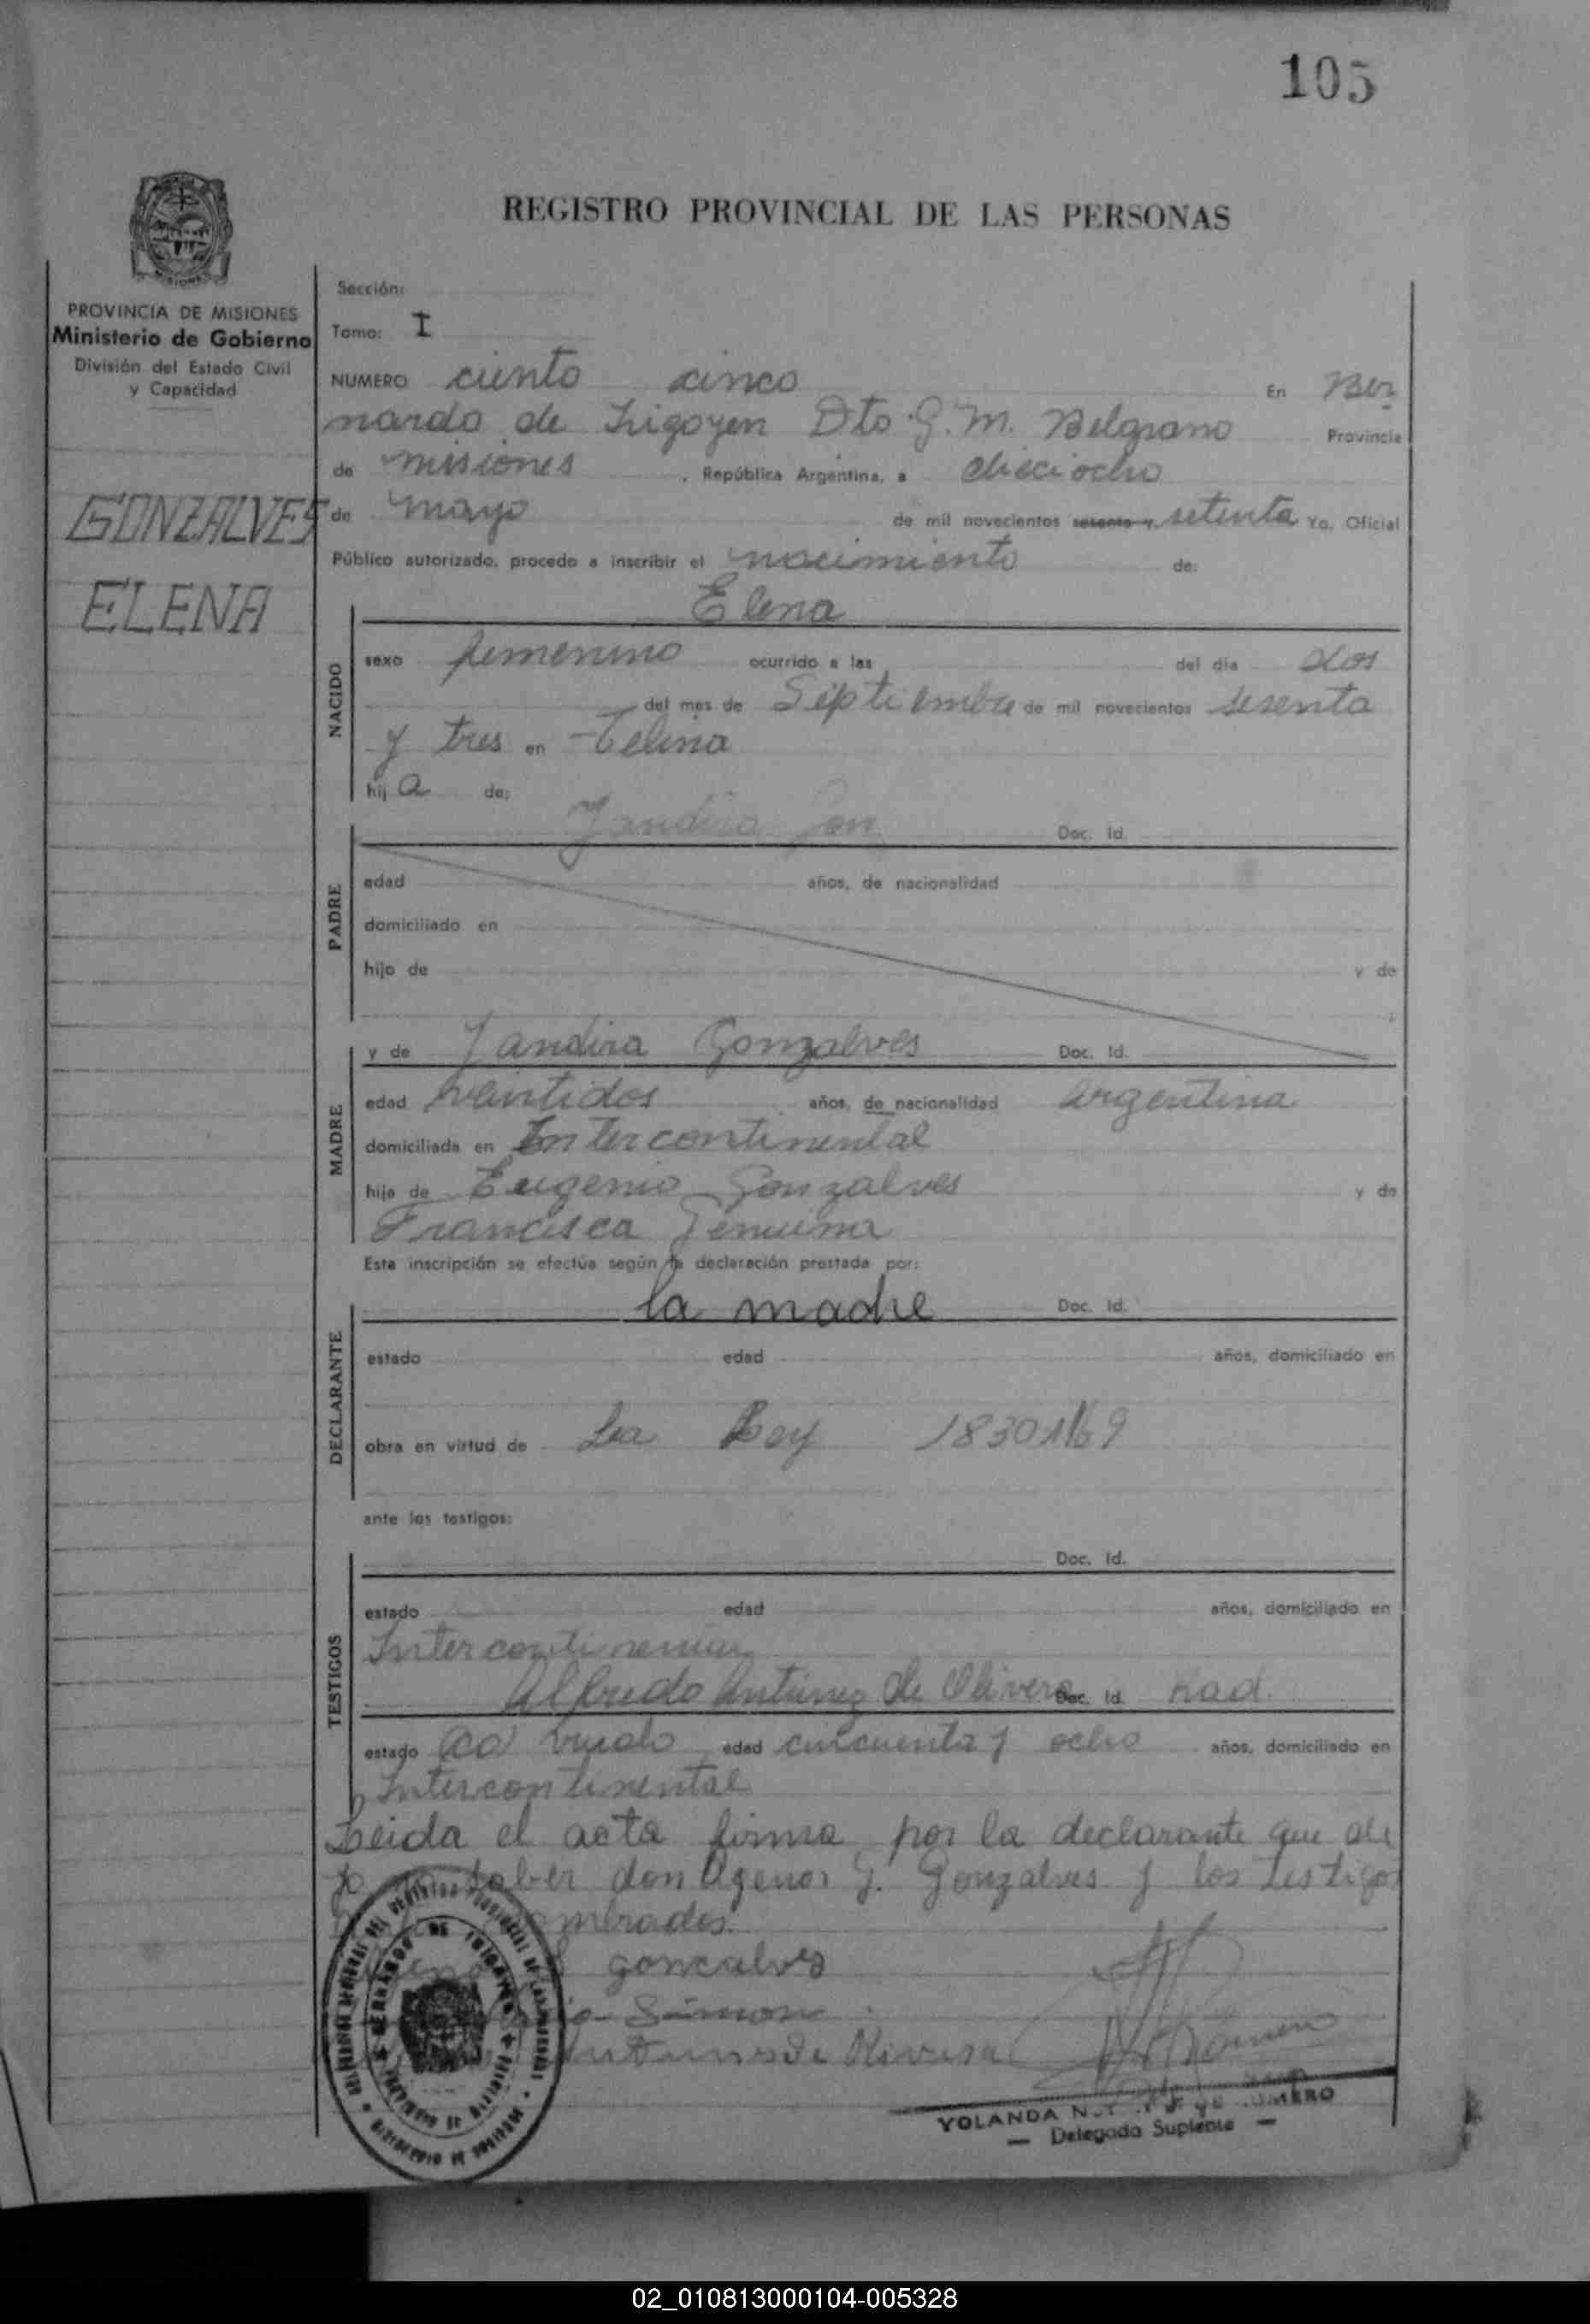 105
REGISTRO PROVINCIAL DE LAS PERSONAS
MISIONES
PROVINCIA DE MISIONES
Ministerio de Gobierno
División del Estado Civil
y Capacidad
GONZALVES
ELENA
Sección:
Tomo: I
NUMERO ciento cinco En Ber
nardo de Irigoyen Dto G. M. Belgrano Provincia
de misiones, República Argentina, a dieciocho
de mayo de mil novecientos sesenta y setenta Yo, Oficial
Público autorizado, procedo a inscribir el nacimiento de:
Elena
NACIDO
sexo femenino ocurrido a las del día dos
del mes de Septiembre de mil novecientos sesenta
y tres en
hij a de:
PADRE
Jandira Gon Doc. Id.
edad años, de nacionalidad
domiciliado en
hijo de y de
MADRE
y de Jandira Gonzalves Doc. Id.
edad veintidos años, de nacionalidad argentina
domiciliada en Intercontinental
hija de Eugenio Gonzalves y de
Francisca
Esta inscripción se efectúa según la declaración prestada por:
DECLARANTE
la madre Doc. Id.
estado edad años, domiciliado en
obra en virtud de La Ley
ante los testigos:
TESTIGOS
Doc. Id.
estado edad años, domiciliado en
Alfredo Antunez de Olivera Doc. Id.
estado edad cincuenta y ocho años, domiciliado en
Intercontinental
Leida el acta firma por la declarante que de
saber don Agenor J. Gonzalves y los testigos
goncalves
Simon
YOLANDA
— Delegada Suplente —
02_010813000104-005328